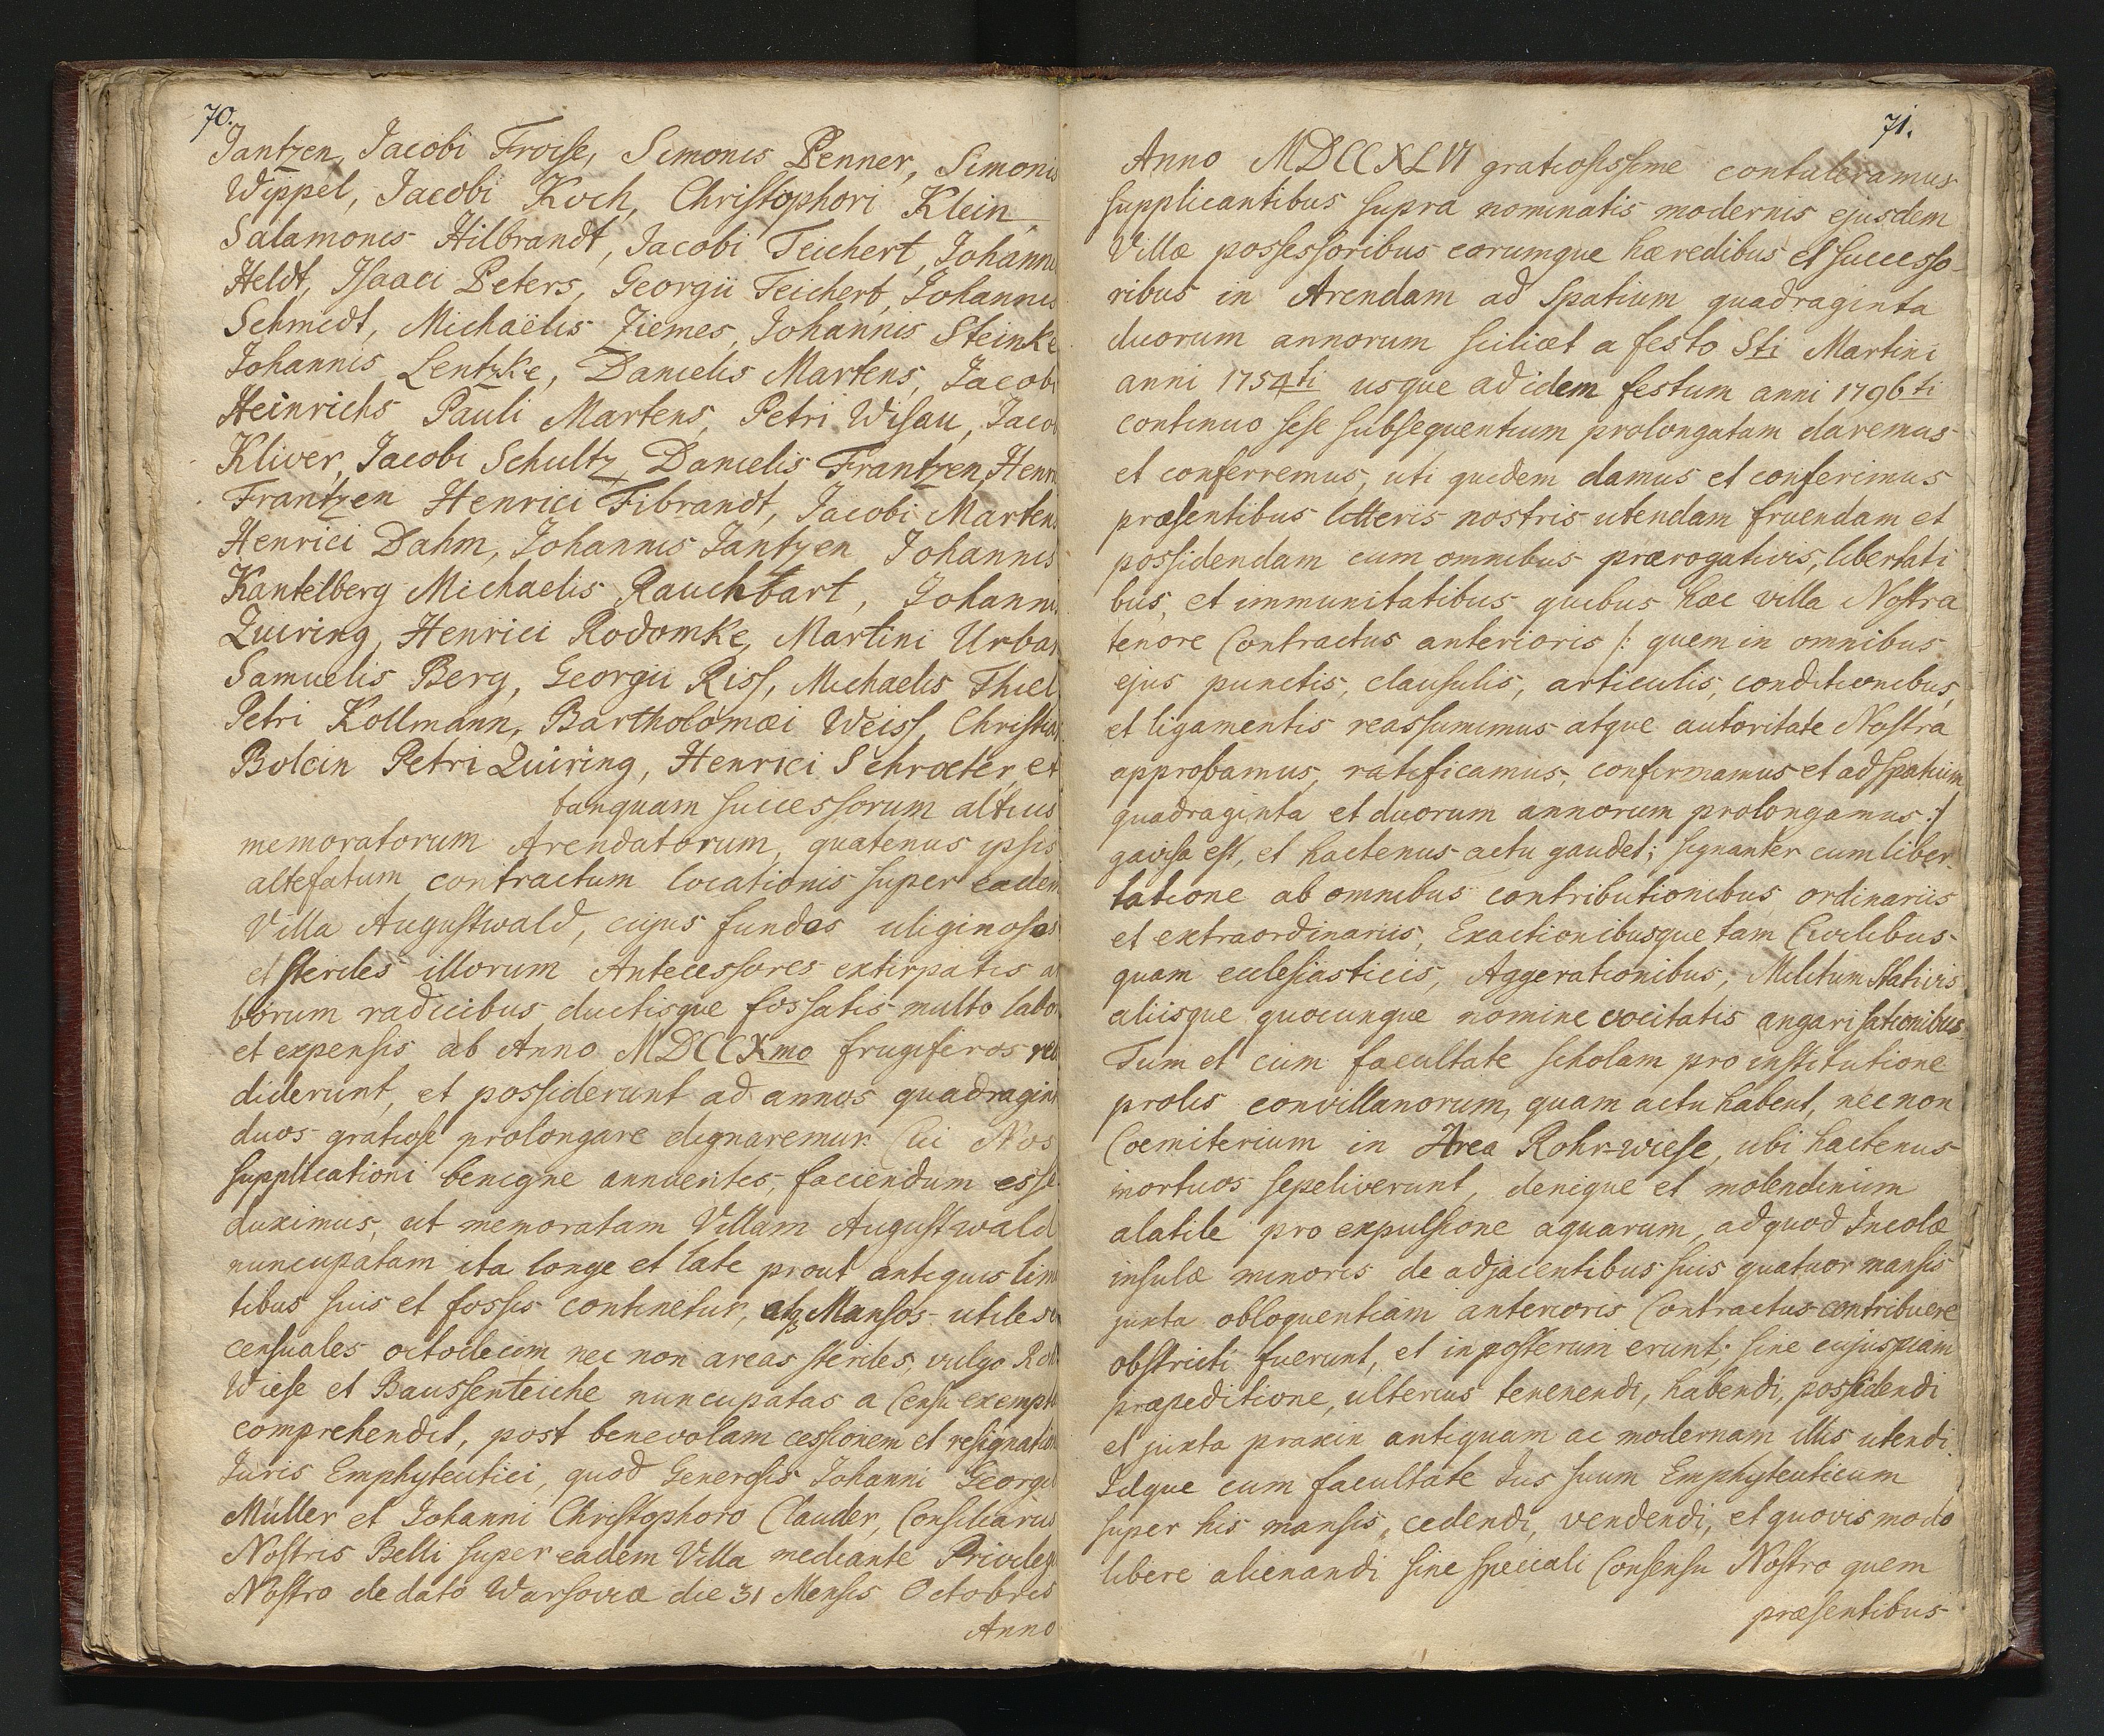 70.
Jantzen, Jacobi Froise, Simonis Penner, Simonis
Wippel, Jacobi Koch, Christophori Klein
Salamonis Hilbrandt, Jacobi Teichert, Johannis
Heldt, Isaaci Peters, Georgii Teichert, Johannis
Schmidt, Michaëlis Ziemes, Johannis Steinke
Johannis Lentzke, Danielis Martens, Jacobi
Heinrichs Pauli Martens, Petri Wisau, Jacob
Kliver, Jacobi Schultz, Danielis Frantzen, Henri
Frantzen Henrici Fibrandt, Jacobi Martens
Henrici Dahm, Johannis Jantzen Johannis
Kantelberg Michaelis Rauchbart, Johanni
Quiring, Henrici Rodomke, Martini Urban
Samuelis Berg, Georgii Riss, Michaelis Thiel
Petri Kollmann, Bartholomæi Weiss, Christian
Bolein Petri Quiring, Henrici Schroeter, et
tanquam successorum altius
memoratorum Arendatorum, quatenus ipsis
altefatum contractum locationis super eadem
Villa Augustwald, cujus fundos uliginosos
et steriles illorum Antecessores extirpatis ar
borum radicibus ductisque fossatis multo labor
et expensis ab Anno MDCCXmo frugiferos red
diderunt, et possiderunt ad annos quadragint
duos gratiose prolongare dignaremur. Cui Nos
supplicationi benigne annuentes, faciendum esse
duximus, ut memoratam Villam Augustwald
nuncupatam ita longe et late prout antiquis limi
tibus suis et fossis continetur, atq3 Mansos utiles s
censuales octodecim nec non areas steriles, vulgo Roh
Wiese et Baussenteiche nuncupatas a Censu exempt
comprehendit, post benevolam cessionem et resignation
Juris Emphyteutici, quod Generosis Johanni Georgio
Müller et Johanni Christophoro Clauder, Consiliarius
Nostris Belli super eadem Villa mediante Privileg
Nostro de dato Warsoviæ die 31 Mensis Octobris
Anno
71.
Anno MDCCXLVI gratiosissime contuleramus
supplicantibus supra nominatis modernis ejusdem
Villæ possessoribus eorumque hæredibus et successo-
ribus in Arendam ad Spatium quadraginta
duorum annorum scilicet a festo Sti Martini
anni 1754ti usque ad idem festum anni 1796ti
continuo sese subsequentium prolongatam daremus
et conferremus, uti quidem damus et conferimus
præsentibus litteris nostris utendam fruendam et
possidendam cum omnibus prærogativis, libertati
bus, et immunitatibus quibus hæc villa Nostra
tenore Contractus anterioris /: quem in omnibus
ejus punctis, clausulis, articulis, conditionibus,
et ligamentis reassumimus atque autoritate Nostra
approbamus, ratificamus, confirmamus et ad spatium
quadraginta et duorum annorum prolongamus :/
gavisa est, et hactenus actu gaudet; signanter cum liber
tatione ab omnibus contributionibus ordinariis
et extraordinariis, Exactionibusque tam Civilibus
quam ecclesiasticis, Aggerationibus, Militum Stativis
aliisque quocunque nomine vocitatis angarisationibus.
Tum et cum facultate scholam pro institutione
prolis convillanorum, quam actu habent, nec non
Coemiterium in Area Rohr-wiese, ubi hactenus
mortuos sepeliverunt, denique et molendinum
alatile pro expulsione aquarum, ad quod Incolæ
insulæ minoris de adjacentibus suis quatuor mansis
juxta obloquentiam anterioris Contractus contribuere
obstricti fuerunt, et in posterum erunt; sine cujuspiam
præpeditione, ulterius tenenendi, habendi, possidendi
et juxta praxin antiquam ac modernam illis utendi.
Idque cum facultate Jus suum Emphyteuticum
super his mansis, cedendi, vendendi, et quovis modo
libere alienandi sine speciali Consensu Nostro quem
præsentibus